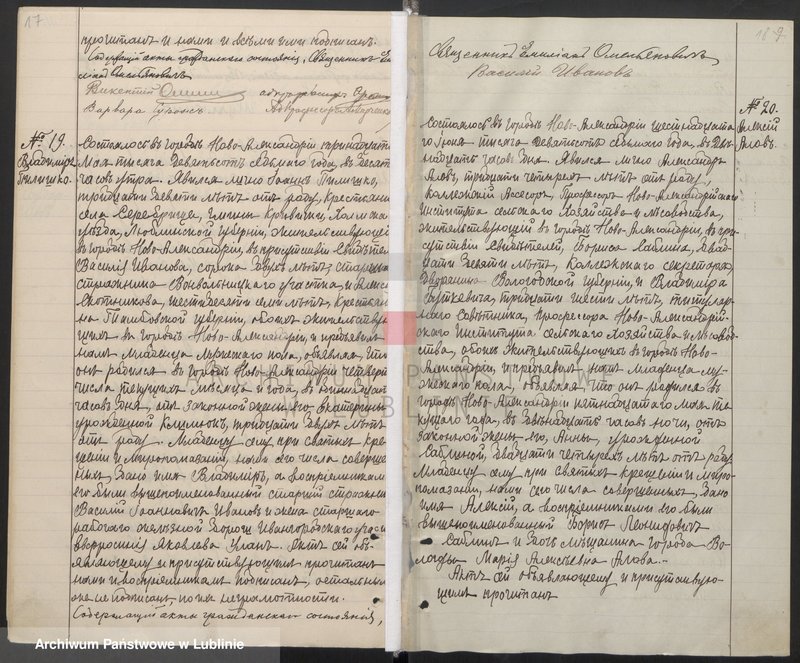 17
прочитанъ и нами и всѣми ими подписанъ.
Содержащій акты гражданскаго состоянія, Священникъ
Варвара
№ 19.
Владиміръ
Пилишко.
Состоялось въ городѣ Ново-Александріи тринадцатаго
Мая тысяча девятьсотъ седьмого года, въ десять
часовъ утра. Явился лично Іоаннъ Пилишко,
тридцати девяти лѣтъ отъ роду, крестьянинъ
села Серебрище, гмины Кривички, Холмскаго
уѣзда, Люблинской губерніи, жительствующій
въ городѣ Ново-Александріи, въ присутствіи свидѣтелей
Василія Иванова, сорока двухъ лѣтъ, старшаго
стражника участка, и
Скотникова, шестидесяти семи лѣтъ, крестьяни-
на Тамбовской губерніи, обоихъ жительствую-
щихъ въ городѣ Ново-Александріи, и предъявилъ
намъ младенца мужескаго пола, объявляя, что
онъ родился въ городѣ Ново-Александріи четвертаго
числа текущихъ мѣсяца и года, въ
часовъ дня, отъ законной жены его, Екатерины
урожденной Климюкъ, тридцати двухъ лѣтъ
отъ роду. Младенцу сему при святомъ кре-
щеніи и Мѵропомазаніи, нами сего числа совершен-
ныхъ, дано имя Владиміръ, а воспріемниками
его были вышепоименованный старшій стражникъ
Василій Іоанновичъ Ивановъ и жена старшаго
рабочаго желѣзной дороги Ивангородскаго
Яковлева Уланъ. Актъ сей объ-
являющему и присутствующимъ прочитанъ
нами и воспріемникомъ подписанъ, остальными
же не подписанъ, по ихъ неграмотности.
Содержащій акты гражданскаго состоянія,
18
Священникъ Емиліанъ Омельяновичъ
Василій Ивановъ
№ 20.
Алексѣй
Аловъ.
Состоялось въ городѣ Ново-Александріи шестнадцата-
го Іюня тысяча девятьсотъ седьмого года, въ две-
надцать часовъ дня. Явился лично Александръ
Аловъ, тридцати четырехъ лѣтъ отъ роду,
Коллежскій Ассесоръ, Профессоръ Ново-Александрійскаго
Института сельскаго хозяйства и лѣсоводства,
жительствующій въ городѣ Ново-Александріи, въ при-
сутствіи свидѣтелей, Бориса Саблина, двад-
цати девяти лѣтъ, Коллежскаго секретаря,
дворянина Вологодской губерніи, и Владиміра
Буткевича, тридцати шести лѣтъ, титуляр-
наго совѣтника, профессора Ново-Александрій-
скаго Института сельскаго хозяйства и лѣсовод-
ства, обоихъ жительствующихъ въ городѣ Ново-
Александріи, и предъявилъ намъ младенца му-
жескаго пола, объявляя, что онъ родился въ
городѣ Ново-Александріи пятнадцатаго Мая те-
кущаго года, въ двѣнадцать часовъ ночи, отъ
законной жены его, Анны, урожденной
Саблиной, двадцати четырехъ лѣтъ отъ роду.
Младенцу сему при святомъ крещеніи и мѵро-
помазаніи, нами сего числа совершенныхъ, дано
имя Алексѣй, а воспріемниками его были
вышепоименованный Борисъ Леонидовичъ
Саблинъ и дочь мѣщанина города Во-
логды Марія Алексѣевна Алова.-
Актъ сей объявляющему и присутствую-
щимъ прочитанъ
Archiwum Państwowe w Lublinie